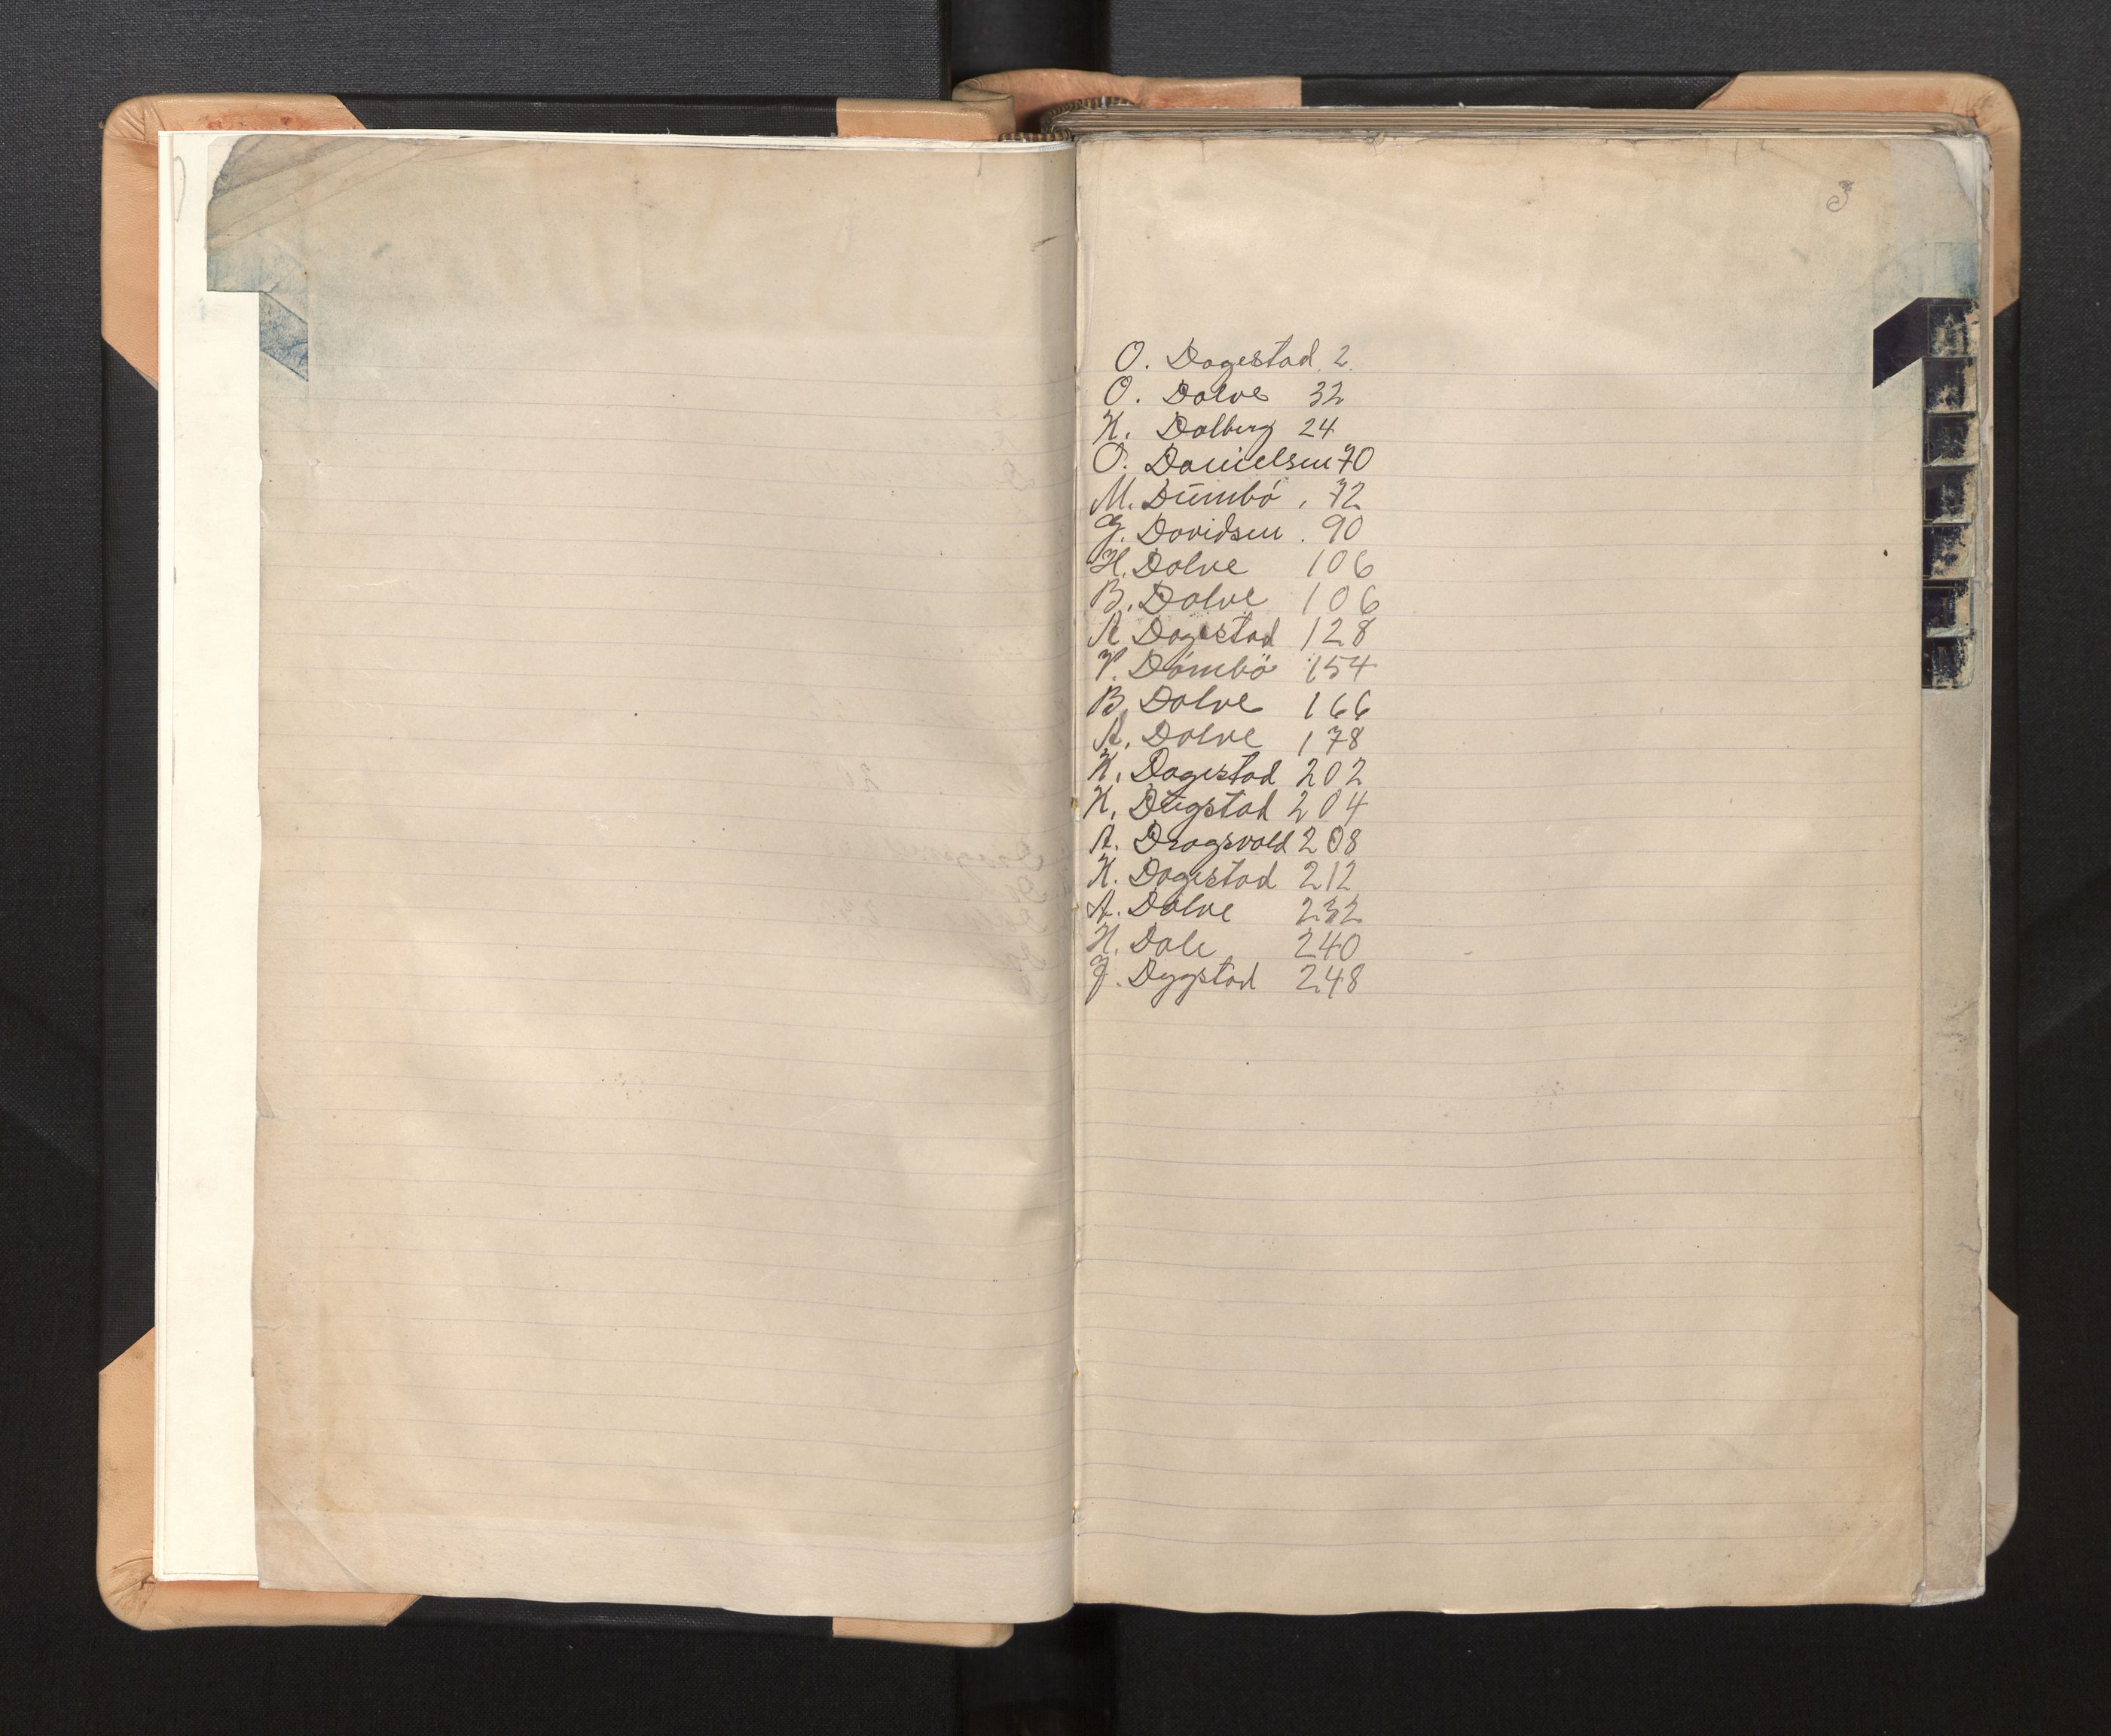 3
O. Dagestad 2
O. Dalve 32
K. Dalberg 24
O. Danielsen 70
M. Dūmbó . 72
G. Davidsen . 90
H. Dolve 106
B. Dolve 106
A Dagestad 128
P. Dómbö 154
B. Dolve 166
A. Dolve 178
K. Dagestad 202
K. Dūgstad 204
A. Dragsvold 208
K. Dagestad 212
A. Dolve 232
N. Dale 240
J. Dygstad 248